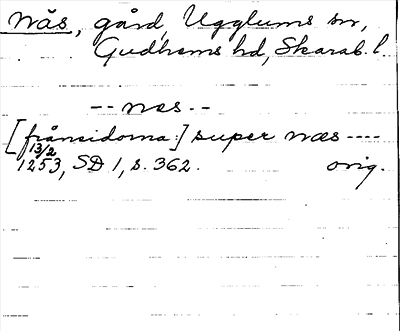 Näs, gård, Ugglums sn,
Gudhems hd, Skarab. l.
-- næs --
[frånsidorna:] super næs ----
13/2
1253, SD 1, s. 362. orig.